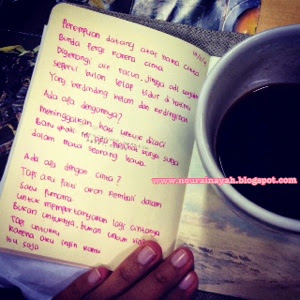 Perempuan datang atas nama cinta
Bunda pergi karena cinta
Digenangi air racun jingga adalah wajahmu
seperti bulan lelap tidur di hatimu
Yang berdinding kelam dan kedinginan
Ada apa dengannya?
Meninggalkan hati untuk dicaci
Baru sekali ini aku melihat karya surga
dalam mata seorang hawa
Ada apa dengan cinta?
Tapi aku pasti akan kembali dalam
satu purnama
untuk mempertanyakan lagi cintanya
Bukan untuknya, bukan untuk siapa
Tapi untukku
Karena aku ingin kamu
Itu saja
www.nourainayah.blogspot.com